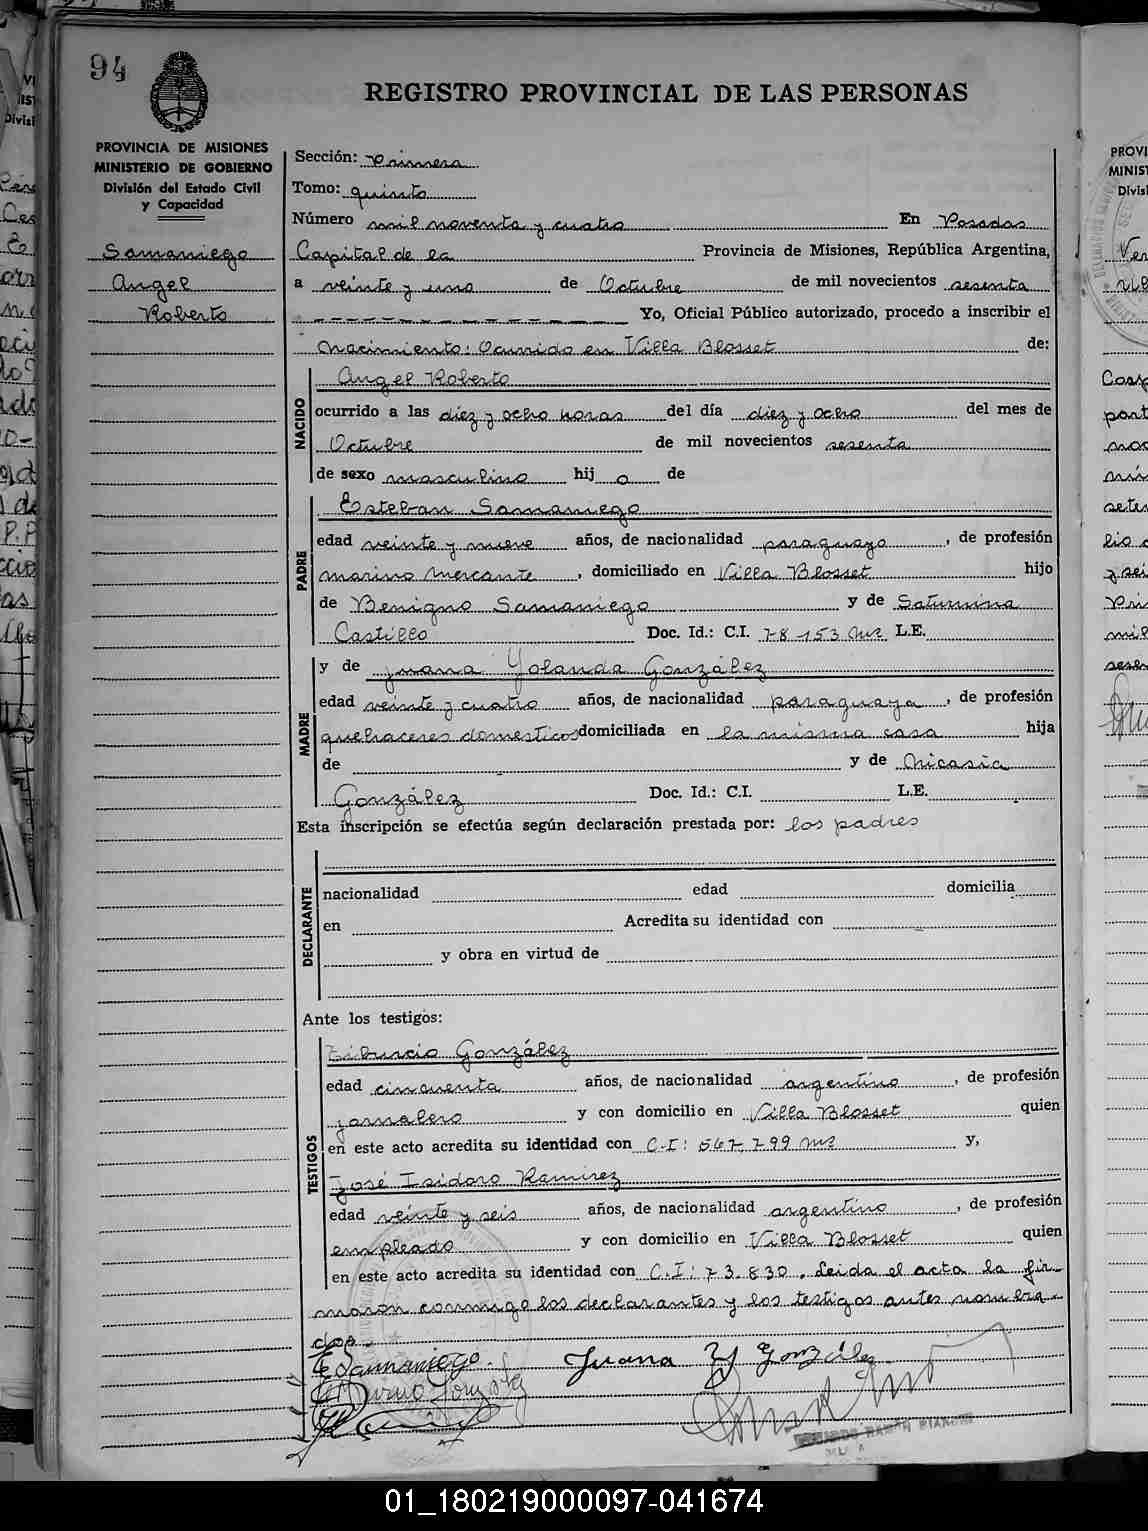 94
REGISTRO PROVINCIAL DE LAS PERSONAS
PROVINCIA DE MISIONES
MINISTERIO DE GOBIERNO
División del Estado Civil
y Capacidad
Samaniego
Angel
Roberto
Sección: Primera
Tomo: quinto
Número mil noventa y cuatro En Posadas
Capital de la Provincia de Misiones, República Argentina,
a veinte y uno de Octubre de mil novecientos sesenta
Yo, Oficial Público autorizado, procedo a inscribir el
Nacimiento: Ocurrido en Villa Blosset de:
NACIDO
Angel Roberto
ocurrido a las diez y ocho horas del día diez y ocho del mes de
Octubre de mil novecientos sesenta
de sexo masculino hij o de
PADRE
Esteban Samaniego
edad veinte y nueve años, de nacionalidad paraguayo, de profesión
marino mercante, domiciliado en Villa Blosset hijo
de Benigno Samaniego y de Saturnina
Castillo Doc. Id.: C.I. 78-153 Mz L.E.
MADRE
y de Juana Yolanda González
edad veinte y cuatro años, de nacionalidad paraguaya, de profesión
quehaceres domesticos domiciliada en la misma casa hija
de y de Nicasia
González Doc. Id.: C.I. L.E.
Esta inscripción se efectúa según declaración prestada por: los padres
DECLARANTE
nacionalidad edad domicilia
en Acredita su identidad con
y obra en virtud de
Ante los testigos:
TESTIGOS
Tiburcio González
edad cincuenta años, de nacionalidad argentino, de profesión
jornalero y con domicilio en Villa Blosset quien
en este acto acredita su identidad con C.I: 567.799 Mz y,
José Isidoro Ramirez
edad veinte y seis años, de nacionalidad argentino, de profesión
empleado y con domicilio en Villa Blosset quien
en este acto acredita su identidad con C.I: 73.830. Leida el acta la fir-
maron conmigo los declarantes y los testigos antes nombra-
dos
E Samaniego. Juana Y González
RAMÓN
01_180219000097-041674